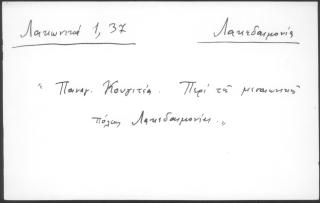 Λακωνικά 1, 37
Λακεδαιμονία
" Παναγ. Κουγιτέα. Περί τῆς μεσαιωνικῆς
πόλεως Λακεδαιμονίας. "